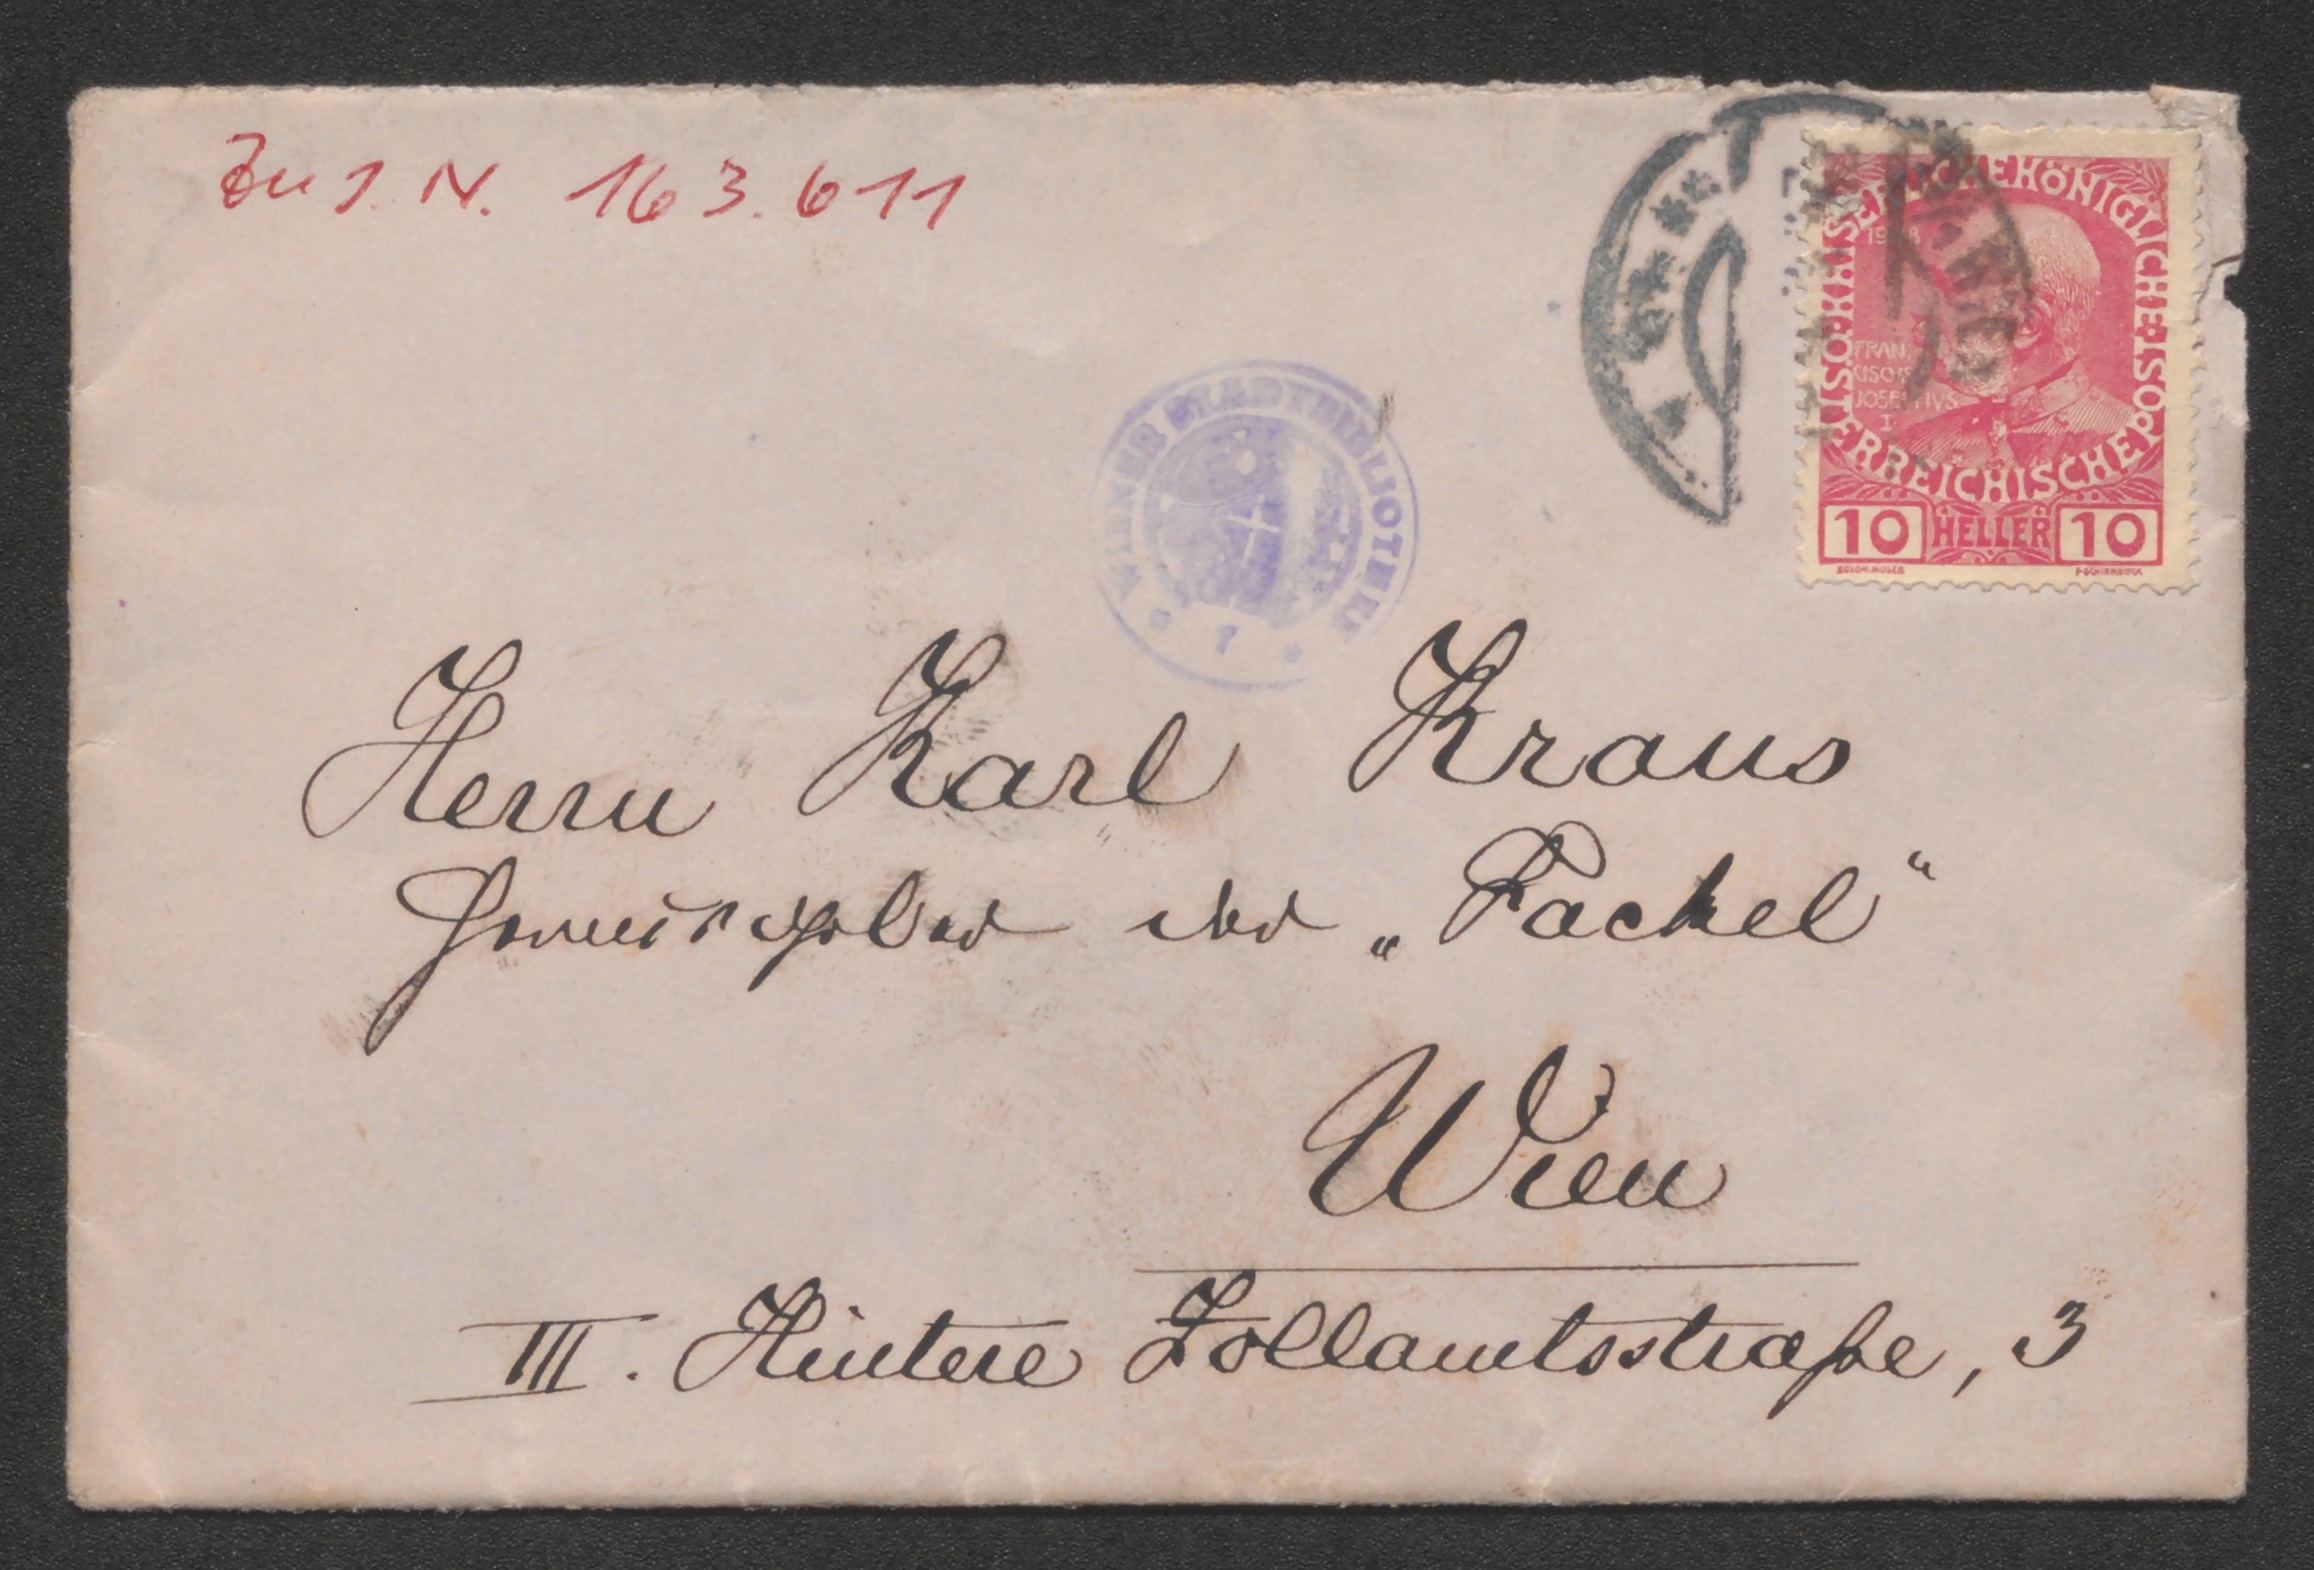 Zu I. N. 163.611
WIENER STADTBIBLIOTHEK
KAISERLICHE KÖNIGLICHE ÖSTERREICHISCHE POST
FRAN
CISCVS
JOSEPHVS
I
10 HELLER 10
WIEN
Herrn Karl Kraus
Herausgeber der „Fackel“
Wien
III. Hintere Zollamtsstraße, 3